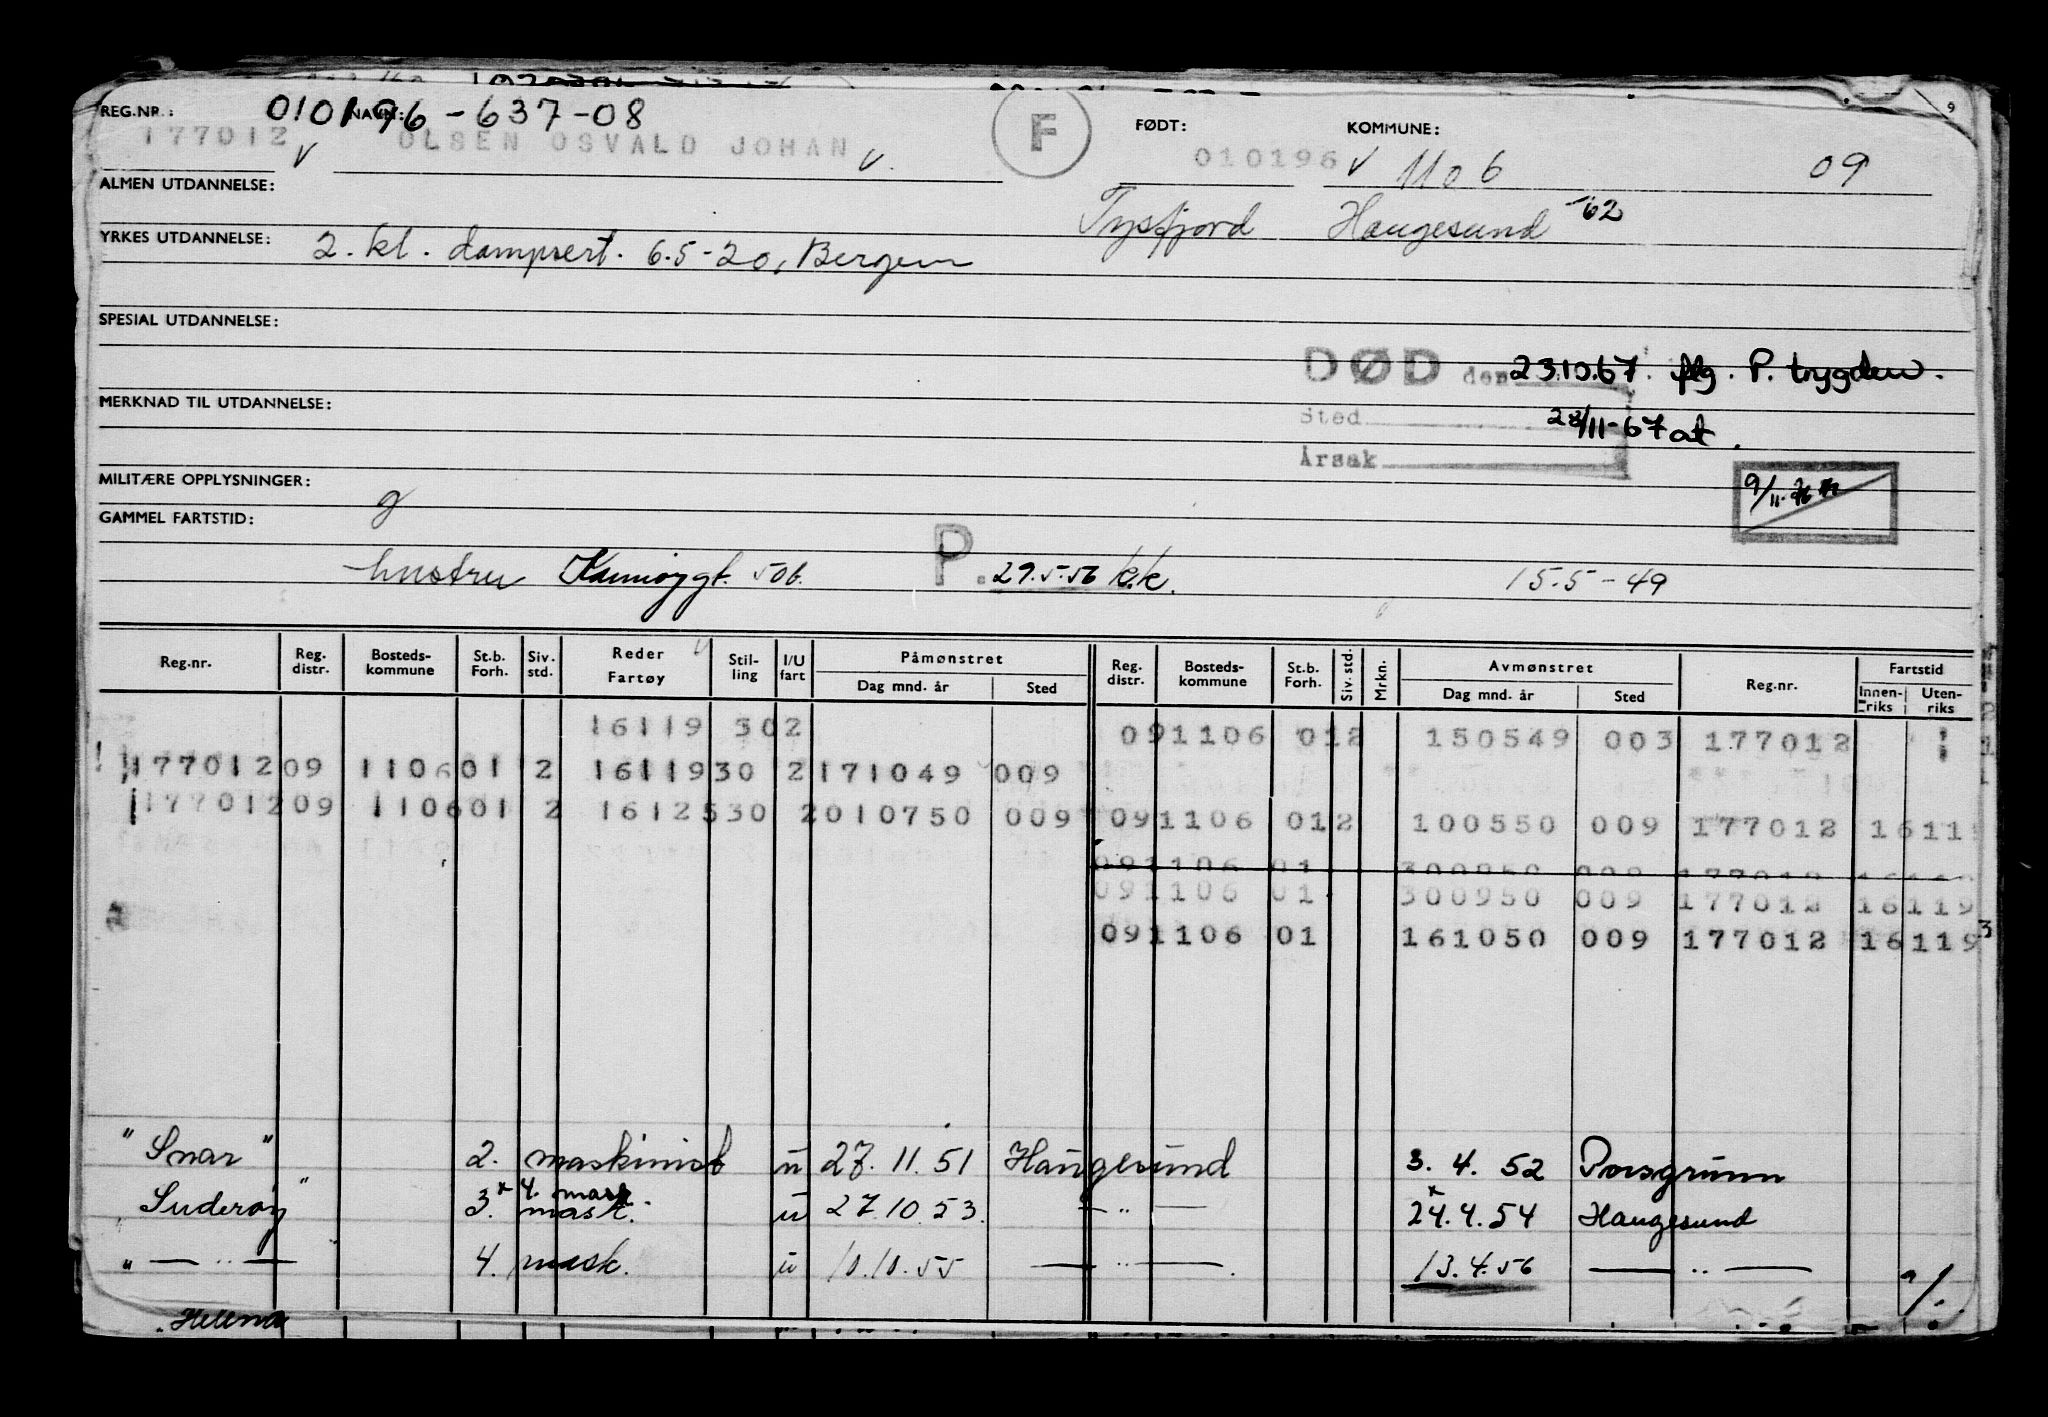 REG.NR.: 010196-637-08 NAVN: F FØDT: KOMMUNE: 9
177012 v OLSEN OSVALD JOHAN v. 010196 v 1106 09
ALMEN UTDANNELSE:
Tysfjord Haugesund -62
YRKES UTDANNELSE: 2. kl. dampsert. 6.5-20, Bergen
SPESIAL UTDANNELSE:
DØD den 23.10.67. flg. P. trygden.
MERKNAD TIL UTDANNELSE:
Sted 28/11-67 at.
Årsak
MILITÆRE OPPLYSNINGER: g 9/11-
GAMMEL FARTSTID:
hustru Karmøygt. 50b. P. 29.5.56 k.k. 15.5-49
Reg.nr. Reg. distr. Bosteds-kommune St.b. Forh. Siv. std. Reder Fartøy Stil-ling I/U fart Påmønstret Dag mnd. år Sted Reg. distr. Bosteds-kommune St.b. Forh. Siv. std. Mrkn. Avmønstret Dag mnd. år Sted Reg.nr. Fartstid Innen-riks Uten-riks
16119 302 091106 012 150549 003 177012
177012 09 1106 01 2 16119 30 2 171049 009
177012 09 1106 01 2 16125 30 2 010750 009 091106 012 100550 009 177012 1611
091106 01 300950 009 177012 16119
091106 01 300950 009 177012 16119
091106 01 161050 009 177012 16119 3
"Snar" 2. maskinist u 27.11.51 Haugesund 3.4.52 Porsgrunn
4. mask.
Suderøy" 3. mask. u 27.10.53. — " — 24.4.54 Haugesund
" — " — 4. mask. u 10.10.55 — " — . 13.4.56 — " —
Helena